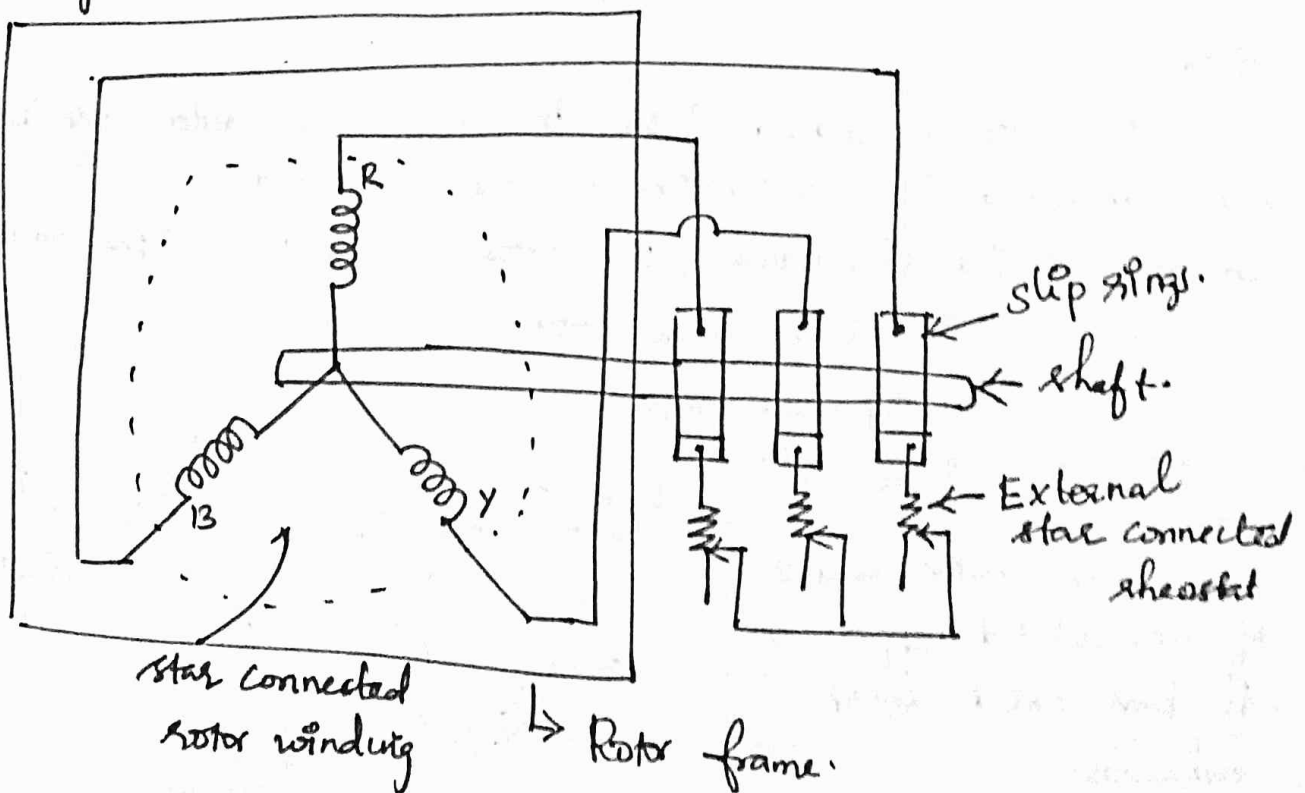 R
slip rings.
shaft.
B
Y
External
star connected
rheostat
star connected
rotor winding
Rotor frame.